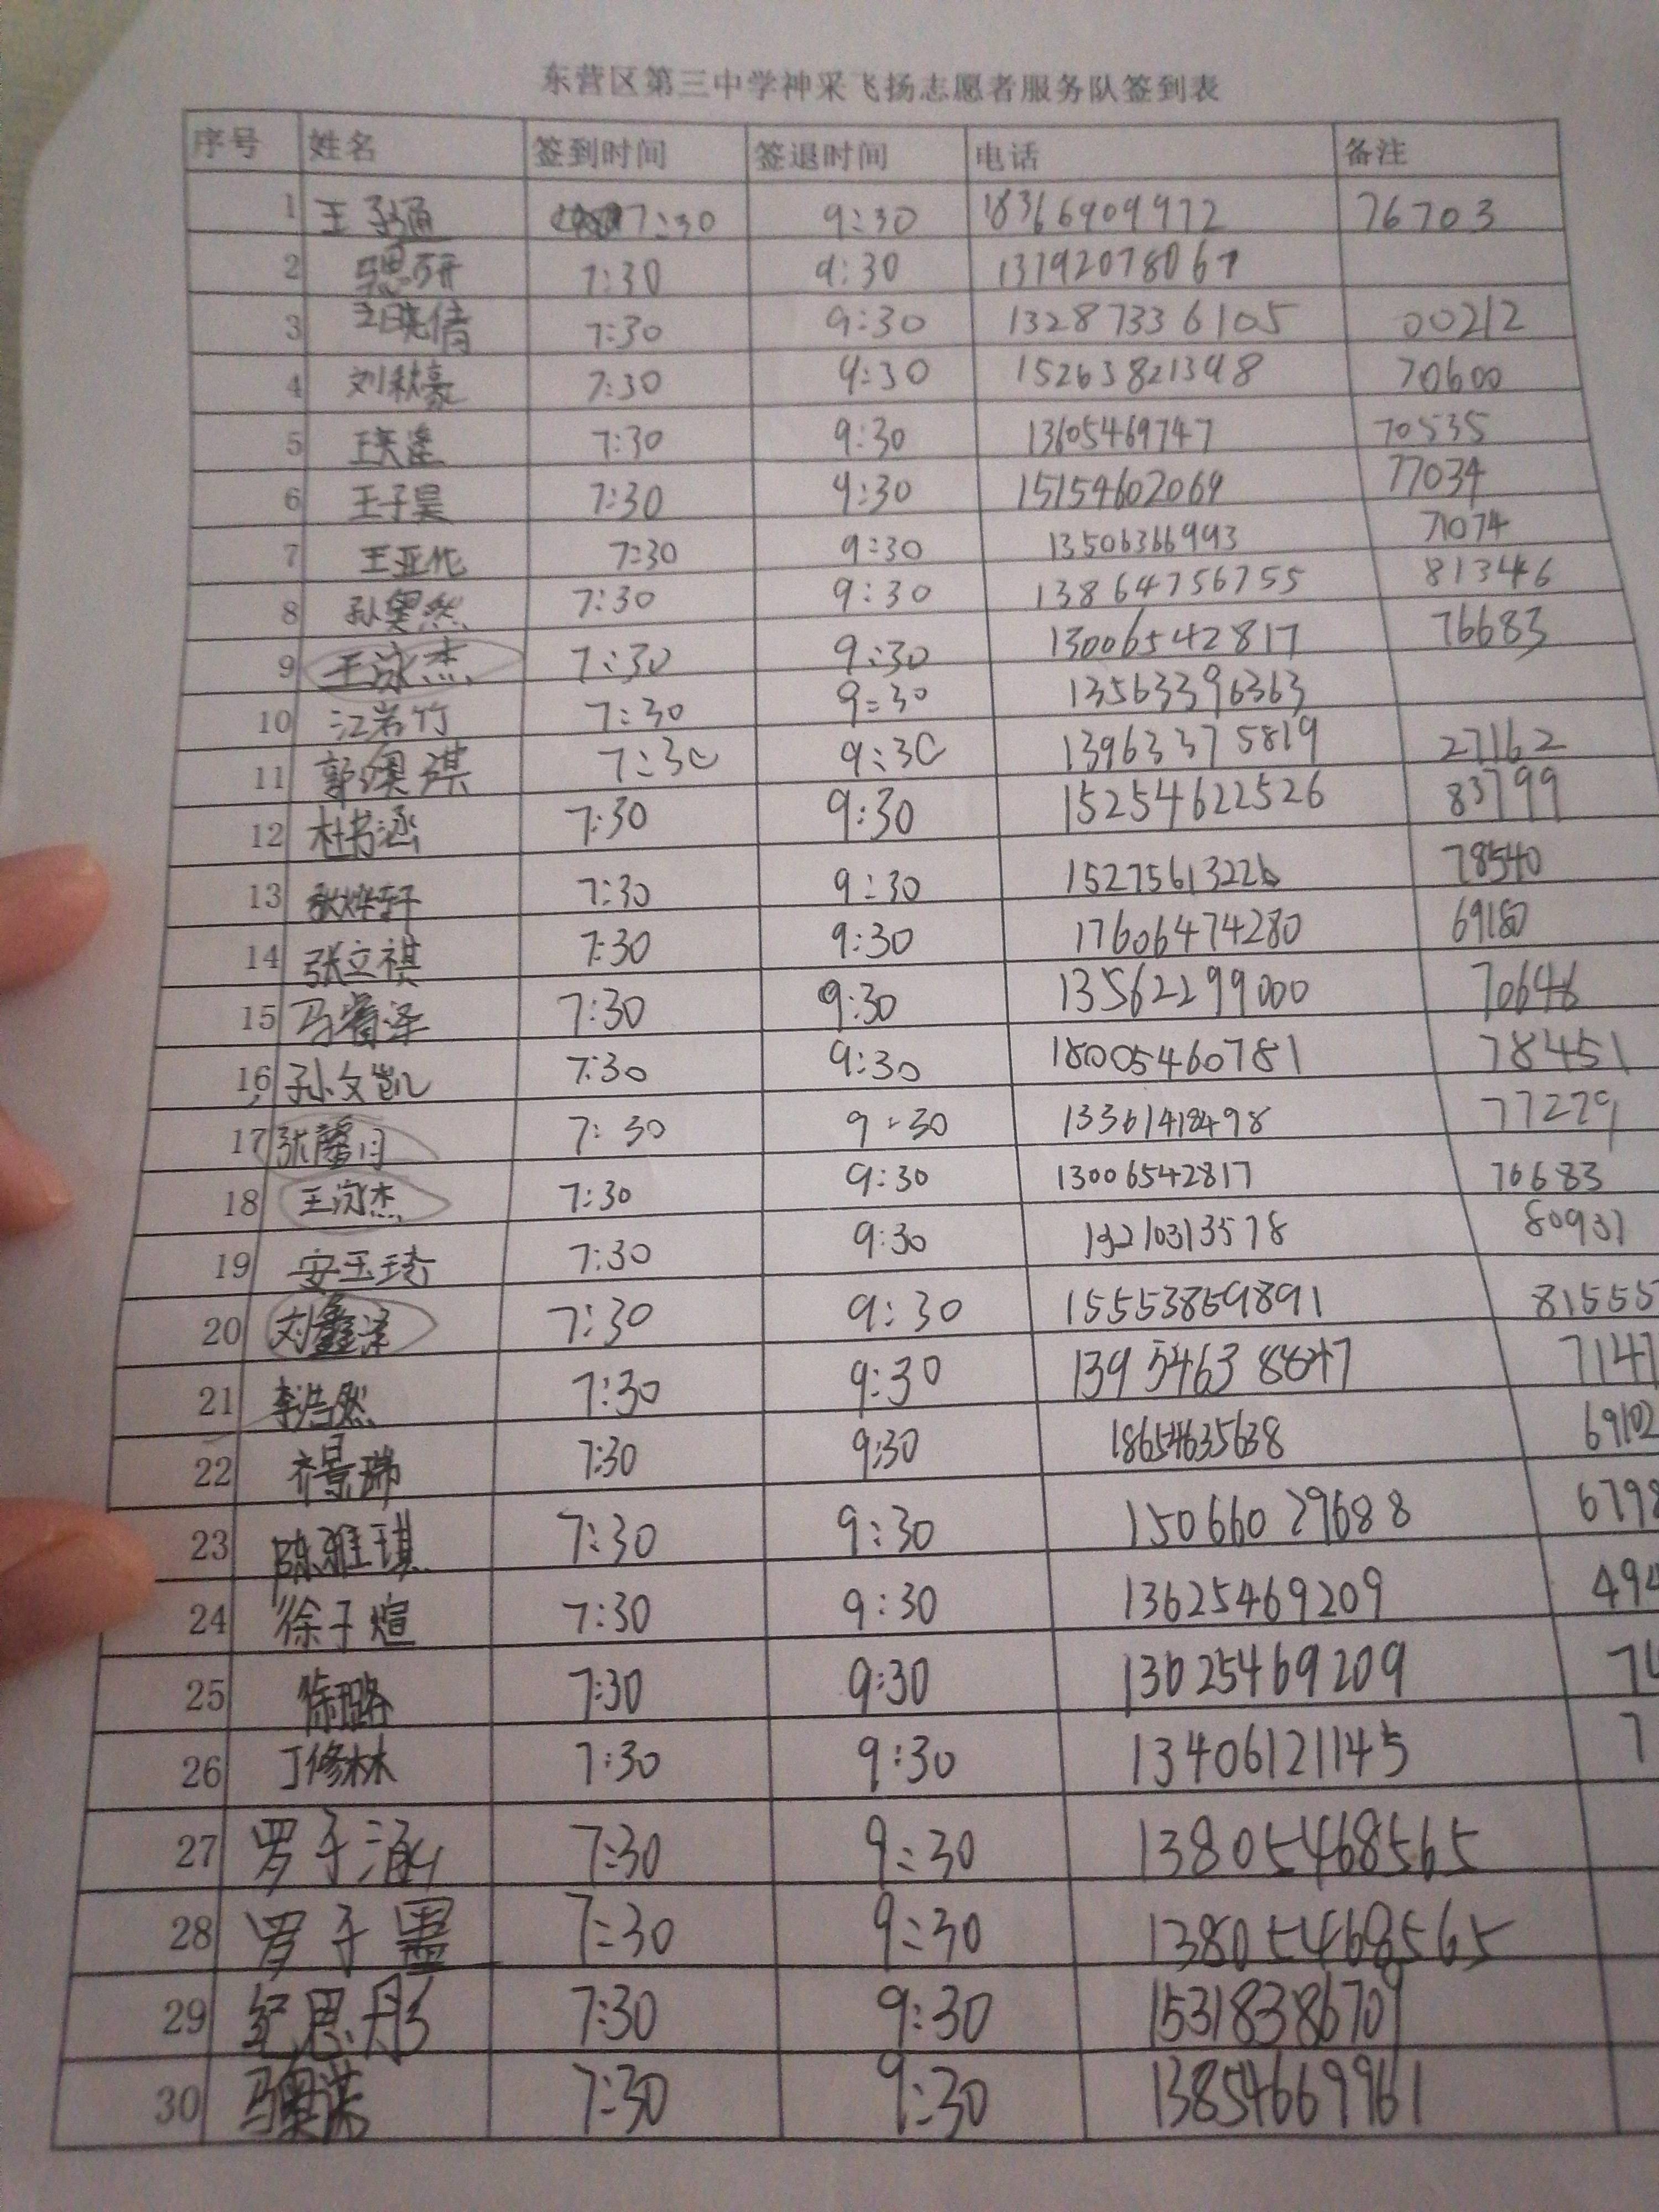 东营区第三中学神采飞扬志愿者服务队签到表
序号 姓名 签到时间 签退时间 电话 备注
1 王子通 7:30 9:30 18366909972 76703
2 7:30 9:30 13792078067
3 7:30 9:30 13287336105 00212
4 刘秋豪 7:30 9:30 15263821398 70600
5 7:30 9:30 13605469747 70535
6 王子昊 7:30 9:30 15154602069 77034
7 王亚伦 7:30 9:30 13506366993 71074
8 孙昊然 7:30 9:30 13864756755 81346
9 王泳杰 7:30 9:30 13006542817 76683
10 江若竹 7:30 9:30 13563396363
11 郭澳祺 7:30 9:30 13963375819 27162
12 杜书涵 7:30 9:30 15254622526 83799
13 张烨轩 7:30 9:30 15275613226 78540
14 张立祺 7:30 9:30 17606474280 69180
15 马睿泽 7:30 9:30 13562299000 70646
16 孙文凯 7:30 9:30 18005460781 78451
17 张馨月 7:30 9:30 13361418498 77229
18 王泳杰 7:30 9:30 13006542817 76683
19 安玉琦 7:30 9:30 13210313578 80937
20 刘鑫泽 7:30 9:30 15553859891 81555
21 李浩然 7:30 9:30 13954638847 7147
22 齐景瑞 7:30 9:30 18654635638 69102
23 陈雅琪 7:30 9:30 15066029688 6798
24 徐子煊 7:30 9:30 13625469209 494
25 徐璐 7:30 9:30 13025469209 74
26 丁修林 7:30 9:30 13406121145 7
27 罗子涵 7:30 9:30 13805468565
28 罗子墨 7:30 9:30 13805468565
29 纪思彤 7:30 9:30 15318386709
30 马奥诺 7:30 9:30 13854669961